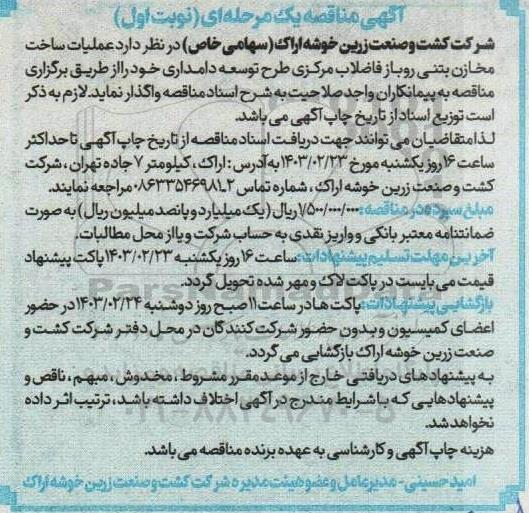 آگهی مناقصه یک مرحله‌ای (نوبت اول)
شرکت کشت و صنعت زرین خوشه اراک (سهامی خاص) در نظر دارد عملیات ساخت
مخازن بتنی روباز فاضلاب مرکزی طرح توسعه دامداری خود را از طریق برگزاری
مناقصه به پیمانکاران واجد صلاحیت به شرح اسناد مناقصه واگذار نماید. لازم به ذکر
است توزیع اسناد از تاریخ چاپ آگهی می باشد.
لذا متقاضیان می توانند جهت دریافت اسناد مناقصه از تاریخ چاپ آگهی تا حداکثر
ساعت ۱۶ روز یکشنبه مورخ ۱۴۰۳/۰۲/۲۳ به آدرس: اراک، کیلومتر ۷ جاده تهران، شرکت
کشت و صنعت زرین خوشه اراک، شماره تماس ۲-۰۸۶۳۳۵۴۶۹۸۱ مراجعه نمایند.
مبلغ سپرده در مناقصه: ۱/۵۰۰/۰۰۰/۰۰۰ ریال (یک میلیارد و پانصد میلیون ریال) به صورت
ضمانتنامه معتبر بانکی و واریز نقدی به حساب شرکت و یا از محل مطالبات
آخرین مهلت تسلیم پیشنهادات: ساعت ۱۶ روز یکشنبه ۱۴۰۳/۰۲/۲۳ پاکت پیشنهاد
قیمت می بایست در پاکت لاک و مهر شده تحویل گردد.
بازگشایی پیشنهادات: پاکت ها در ساعت ۱۱ صبح روز دوشنبه ۱۴۰۳/۰۲/۲۴ در حضور
اعضای کمیسیون و بدون حضور شرکت کنندگان در محل دفتر شرکت کشت و
صنعت زرین خوشه اراک بازگشایی می گردد.
به پیشنهادهای دریافتی خارج از موعد مقرر مشروط، مخدوش، مبهم، ناقص و
پیشنهادهایی که با شرایط مندرج در آگهی اختلاف داشته باشد، ترتیب اثر داده
نخواهد شد.
هزینه چاپ آگهی و کارشناسی به عهده برنده مناقصه می باشد.
امید حسینی - مدیرعامل و عضو هیئت مدیره شرکت کشت و صنعت زرین خوشه اراک